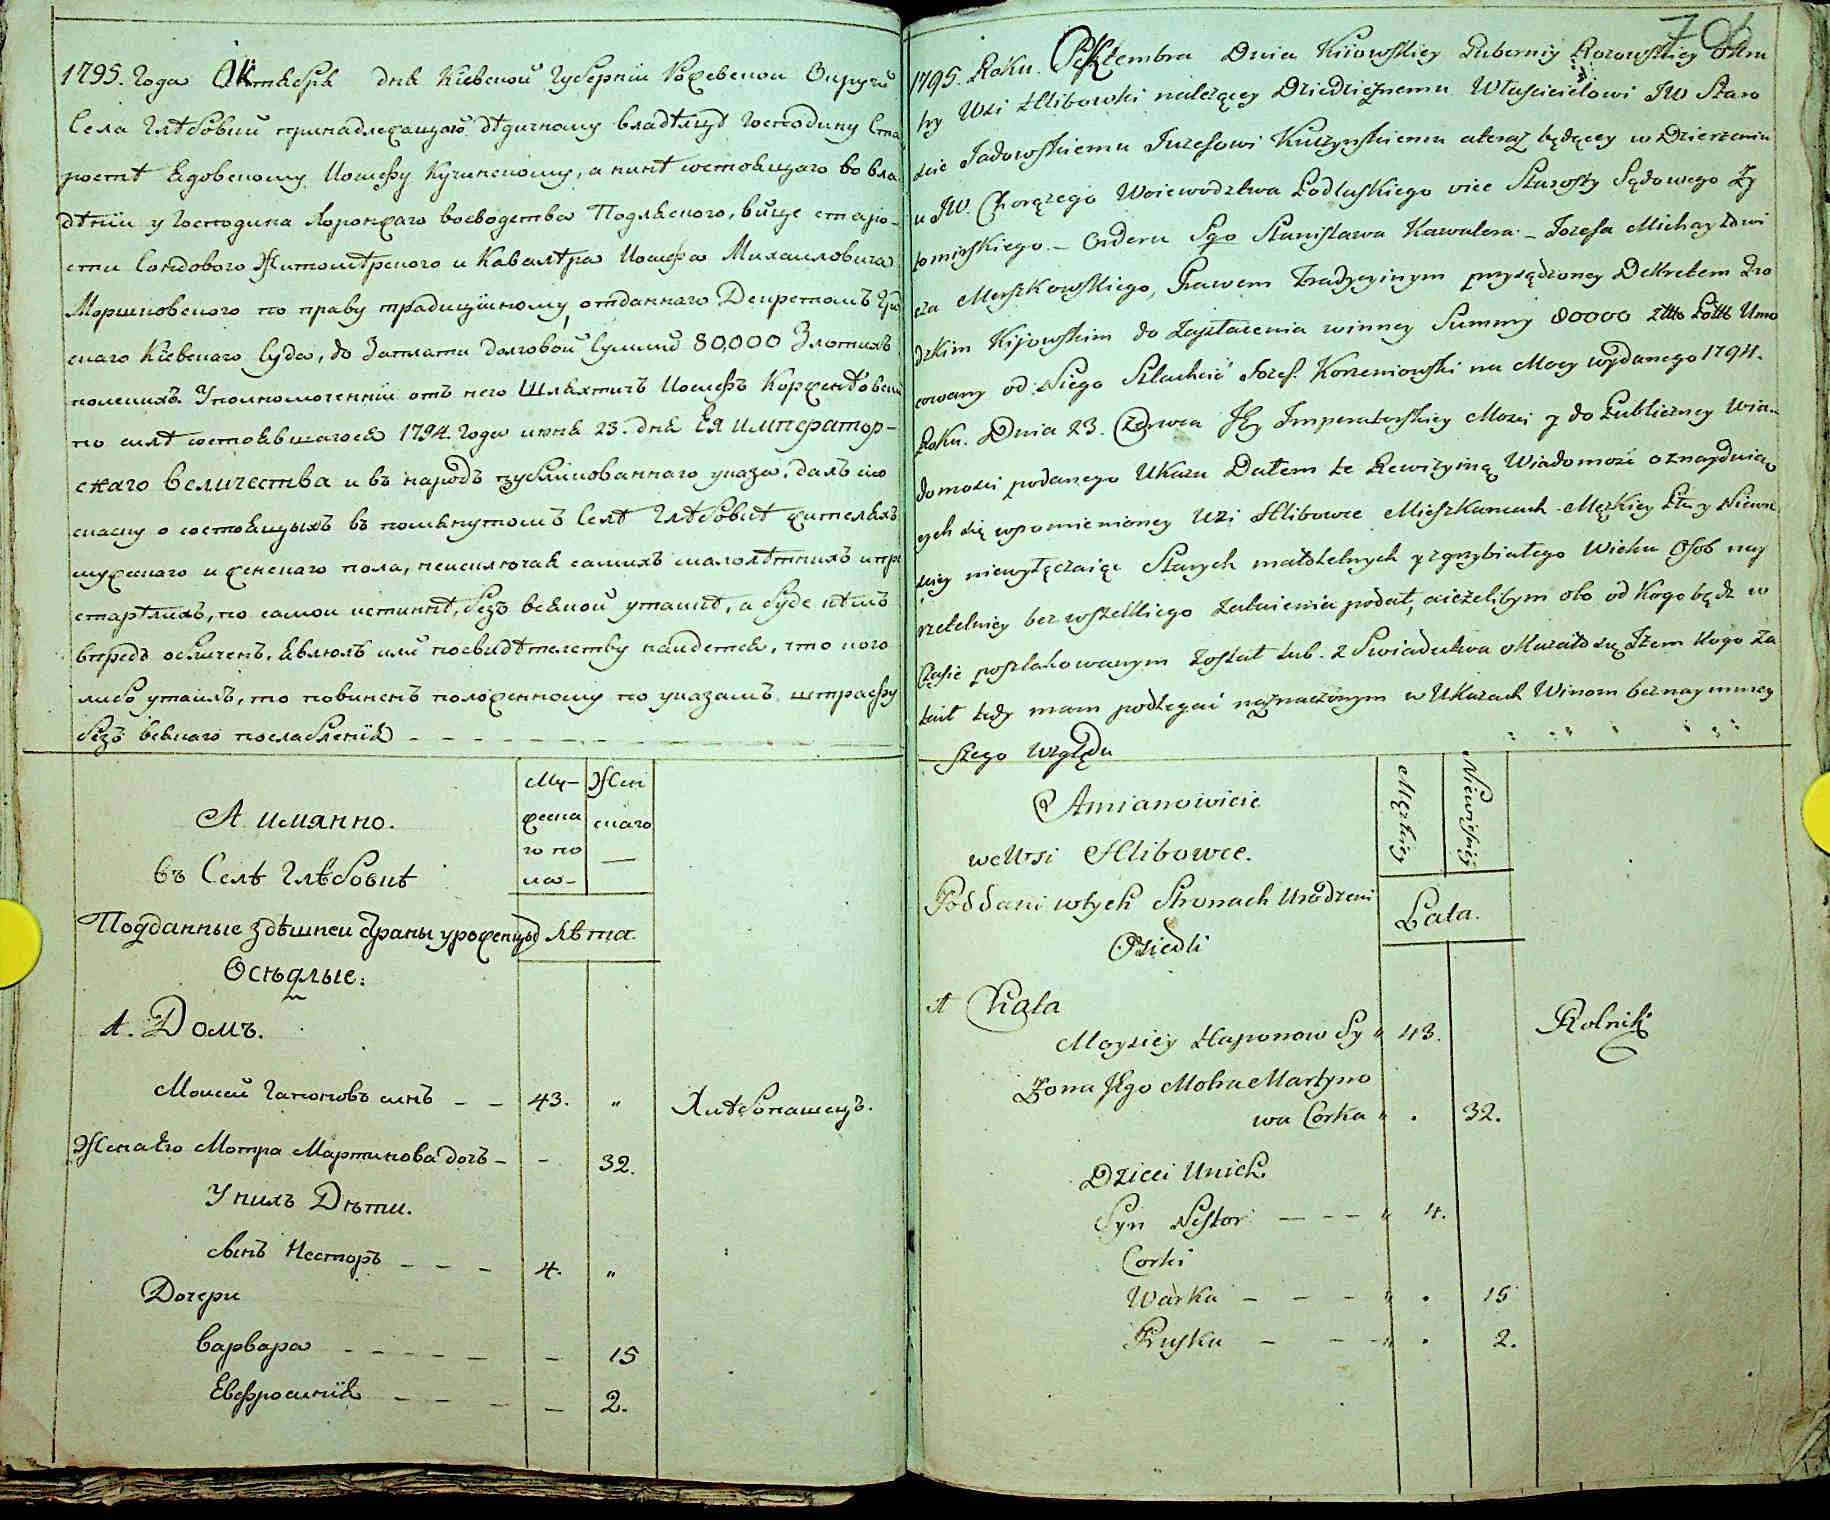 1795. Года Октября дня Киевской Губернии Рожевской Округи
Села Глѣбовки принадлежащаго дѣдичному владѣльцу Господину Ста
ростѣ Ядовскому Иосифу Кучинскому, а нинѣ состоящаго во вла
дѣнiи у Господина Хоронжаго воеводства Подляского, вице старо-
сти Сондового Житомѣрского и Кавалѣра Иосифа Михаиловича
Моршковского по праву традицiиному отданнаго Декретомъ
скаго Кiевскаго Суда, до Заплати долговой Суммы 80,000 Злотихъ
полскихъ. Уполномоченнiи отъ него Шляхтичъ Иосифъ Корженѣовски
по силѣ состоявшагося 1794. года июня 23. дня Ея Император-
скаго Величества и въ народъ публикованнаго указа, далъ сию
скаску о состоящыхъ въ помянутомъ Селѣ Глѣбовкѣ жителяхъ
мужескаго и женскаго пола, неисключая самихъ малолѣтнихъ и пре
старѣлихъ, по самои истиннѣ, безъ всякой утаики, а буде кѣмъ
впредъ обличенъ, явлюсь или по свидѣтелству наидется, что кого
либо утаилъ, то повиненъ положенному по указамъ штрафу
безъ всякаго послабленiя
А имянно.
Въ Селѣ Глѣбовкѣ
Му-
жеска
го по
ла-
Жен
скаго
Подданные здѣшнеи Страны уроженцы
лѣта.
Осѣдлые:
1. Домъ.
Моисей Гапоновъ синъ - - 43. " Хлѣбопашецъ.
Жена Его Мотра Мартинова дочь - - 32.
У нихъ Дѣти.
Синъ Несторъ - - - 4. "
Дочери
Варвара - - - - - - 15
Евфросинiя - - - - 2.
7
1795. Roku. Oktembra Dnia Kiiowskiey Guberniy Rozowskiey Okru
hy Wsi Hlibowki należącey Dziedzicznemu Właścicielowi JW Staro
ście Jadowskiemu Jozefowi Kuczynskiemu a teraz będącey w Dzierzeniu
u JW. Chorążego Woiewodztwa Podlaskiego vice Starosty Sądowego Zy
tomirskiego. - Orderu Sgo Stanisława Kawalera. - Jozefa Michayłowi
cza Morszkowskiego, Prawem Tradycyinym przysądzoney Dekretem Gro
dzkim Kijowskim do Zapłacenia winney Summy 80000 Umo
cowany od Niego Szlachcic Jozef Korzeniowski na Mocy wydanego 1794.
Roku. Dnia 23. Czerwca Jey Imperatorskiey Mości y do Publiczney Wia-
domości podanego Ukazu Dałem tę Rewizyiną Wiadomość o znayduią
cych się wpomienioney Wsi Hlibowce Mieszkancach Męzkiey Płci y Niewie
ściey niewyłączaiąc Starych małoletnych y zgrzybiałego Wieku Osob nay
rzetelniey bez wszelkiego zataienia podał, a ieżelibym oto od Kogo będz w
Czasie poszlakowanym został lub z Swiadectwa okazało się Iżem Kogo za
taił tedy mam podlegać naznaczonym w Ukazach Winom bez naymniey
szego Względu
A mianowicie
we Wsi Hlibowce.
Męzkiey
Niewieściey
Poddani w tych Stronach Urodzeni
Lata.
Osiedli
1 Chata
Moysiey Haponow Sy " 43. Rolnik
Zona Jego Motra Martyno
wa Corka " . 32.
Dzieci Unich.
Syn Nestor - - - " 4.
Corki
Warka - - - " . 15
Pruska - - - " . 2.